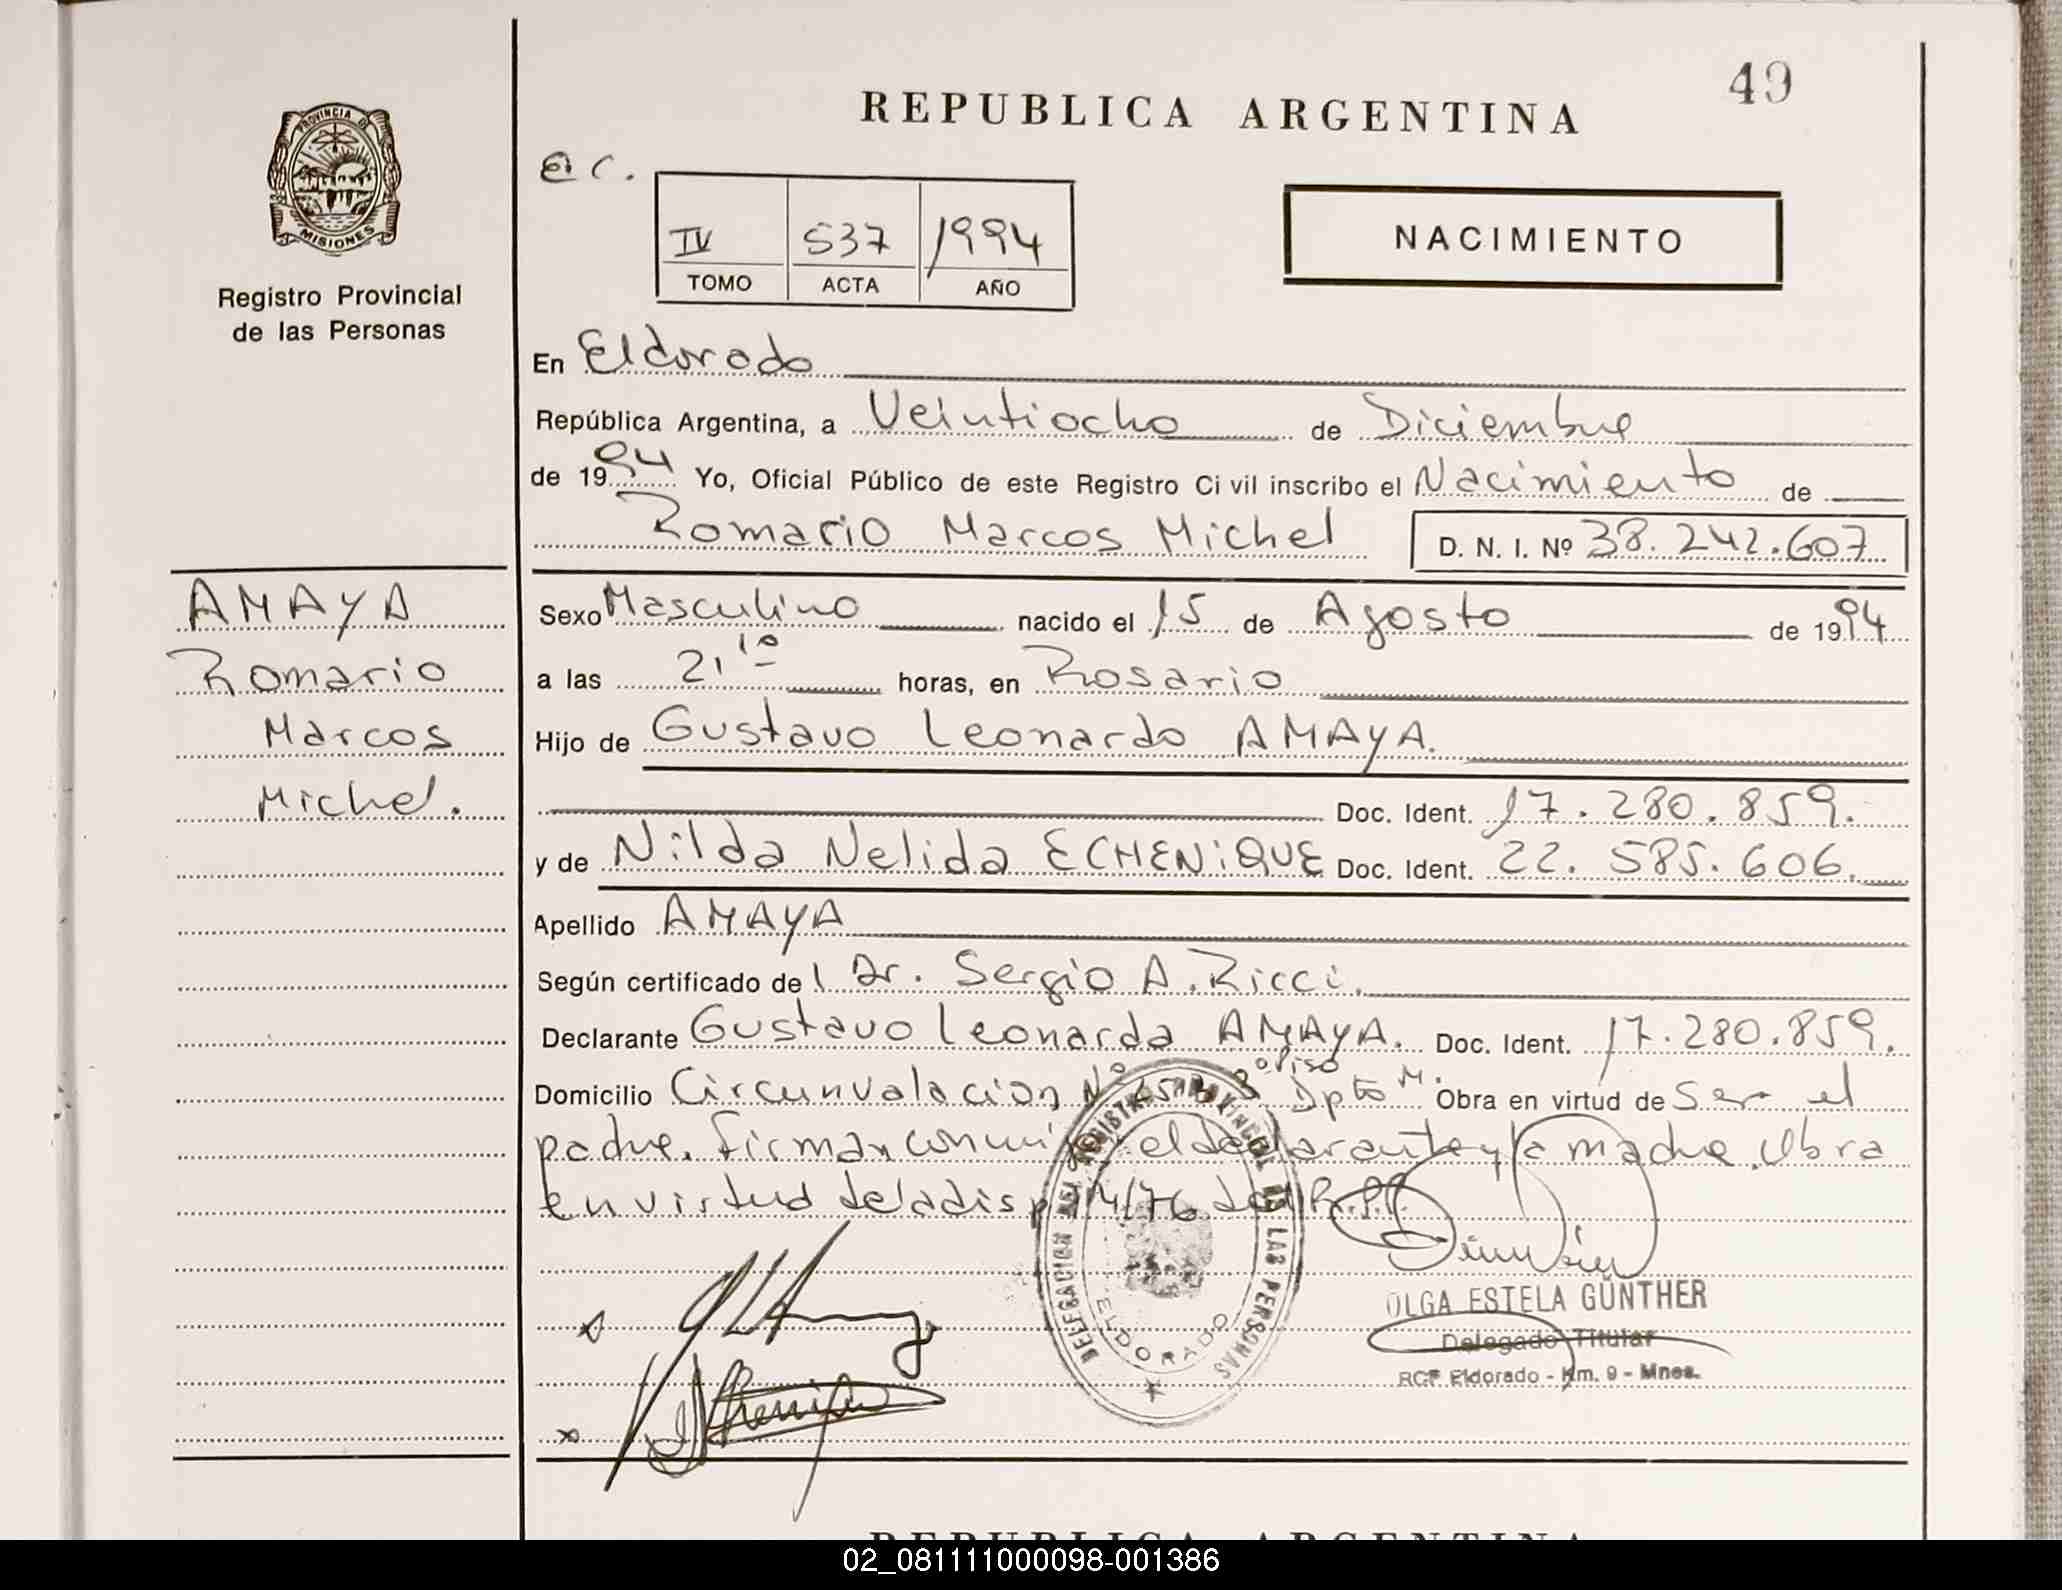 49
REPUBLICA ARGENTINA
PROVINCIA DE
MISIONES
Registro Provincial
de las Personas
E. C.
IV 537 1994
TOMO ACTA AÑO
NACIMIENTO
En Eldorado
República Argentina, a Veintiocho de Diciembre
de 1994 Yo, Oficial Público de este Registro Civil inscribo el Nacimiento de
Romario Marcos Michel D. N. I. Nº 38.242.607
AMAYA
Romario
Marcos
Michel.
Sexo Masculino nacido el 15 de Agosto de 1994
a las 21,10 horas, en Rosario
Hijo de Gustavo Leonardo AMAYA.
Doc. Ident. 17.280.859.
y de Nilda Nelida ECHENIQUE Doc. Ident. 22.585.606.
Apellido AMAYA
Según certificado del Dr. Sergio A. Ricci.
Declarante Gustavo Leonarda AMAYA. Doc. Ident. 17.280.859.
Domicilio Circunvalacion Nº 3º Piso Dpto M. Obra en virtud de ser el
padre. Firman conmigo el declarante y la madre. Obra
en virtud de la disp 14/76 del R.P.P.
DELEGACION DEL REGISTRO PROVINCIAL DE LAS PERSONAS
ELDORADO
OLGA ESTELA GÜNTHER
Delegado Titular
RCP Eldorado - Km. 9 - Mnes.
REPUBLICA ARGENTINA
02_081111000098-001386